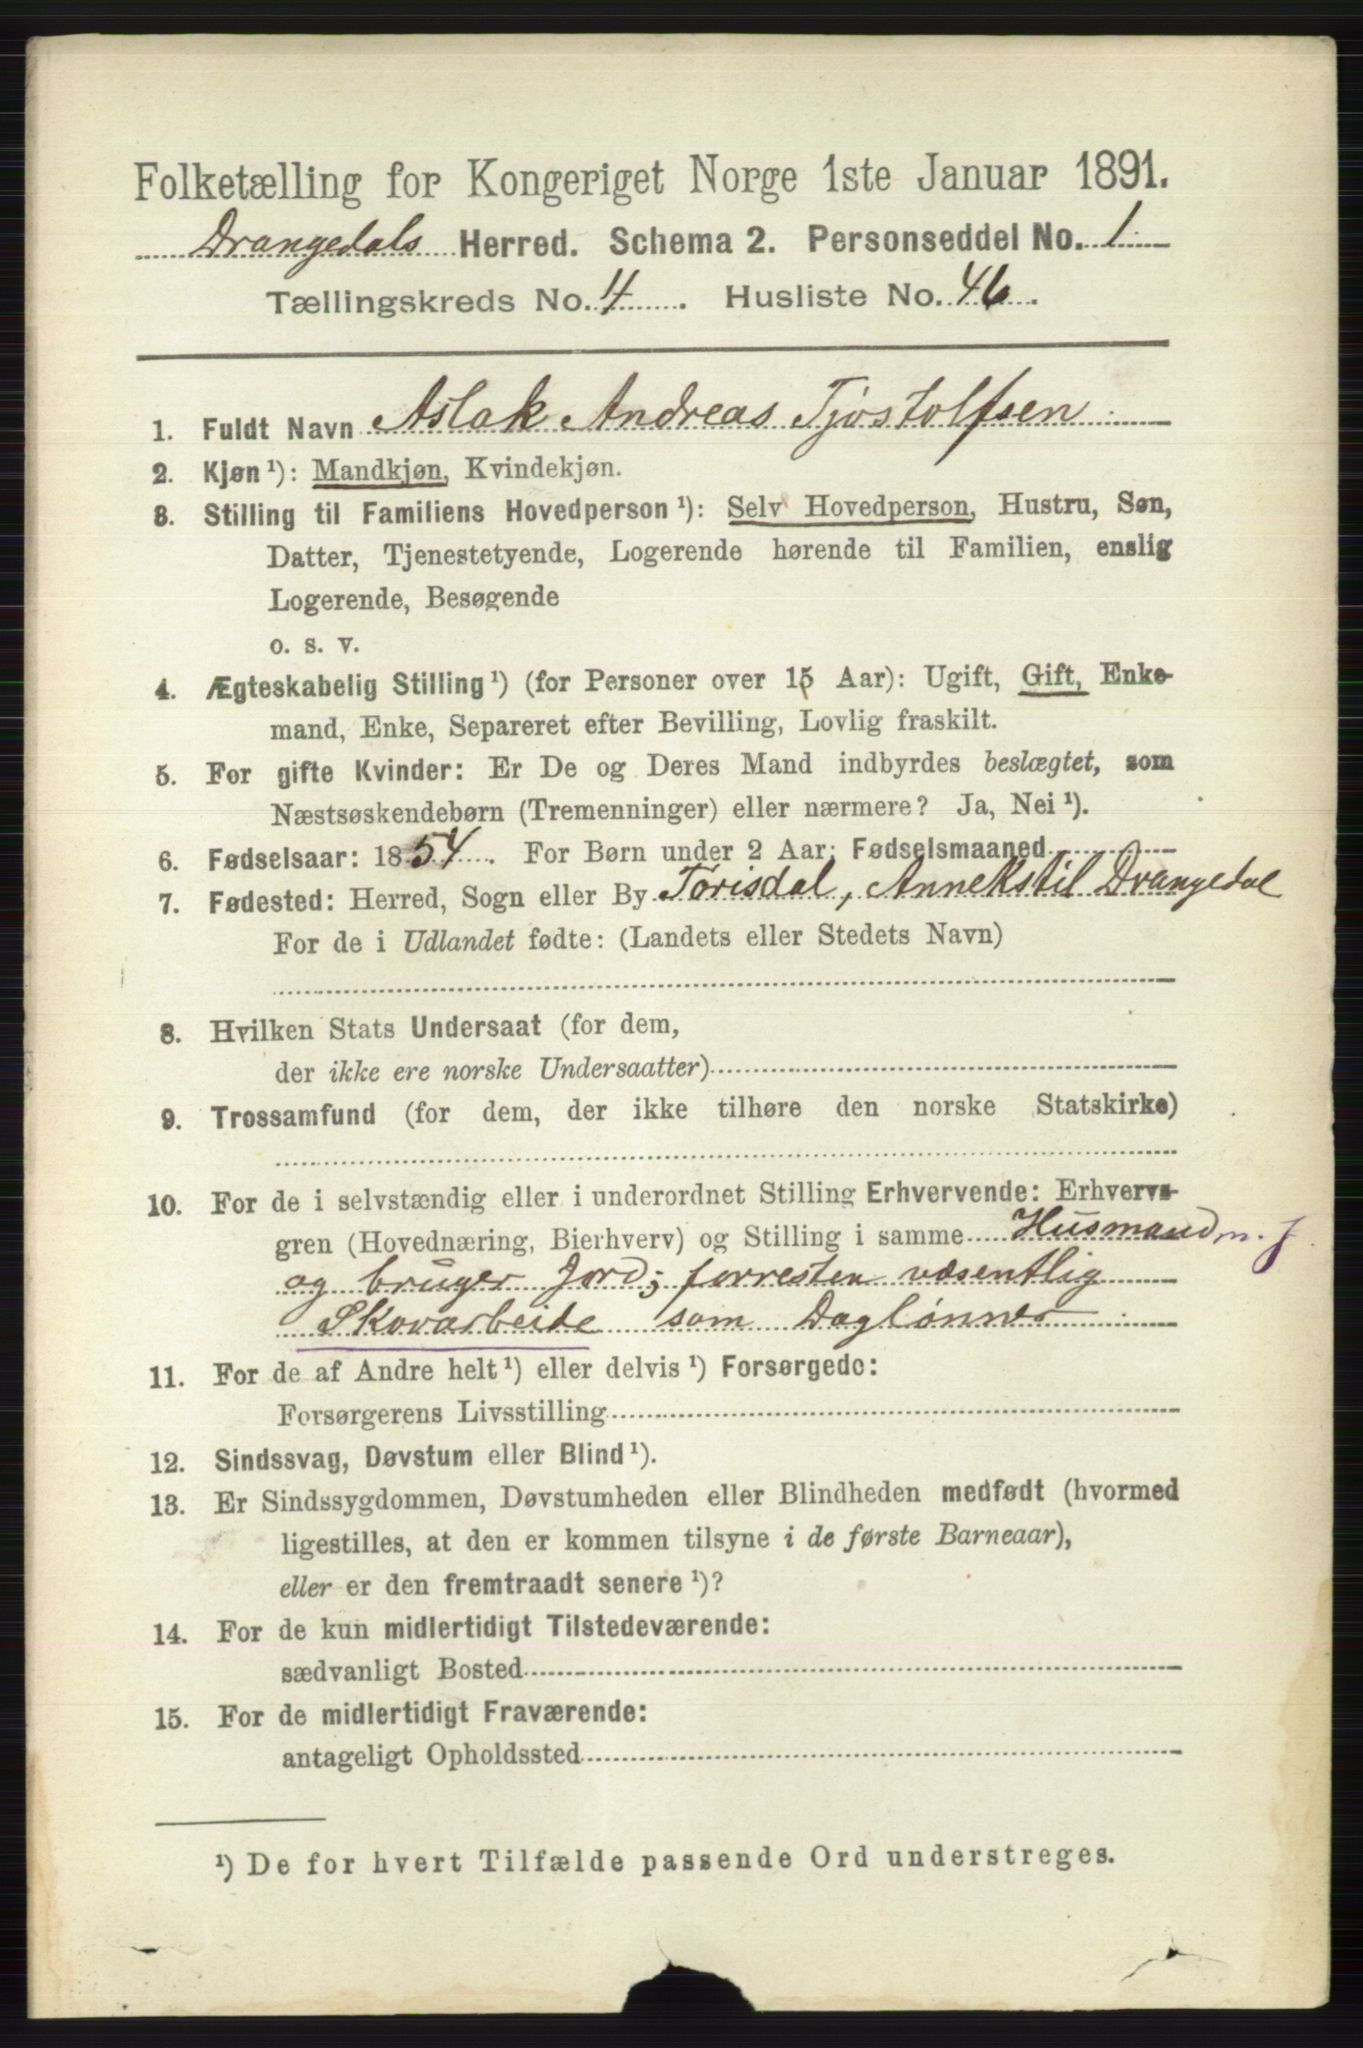 Folketælling for Kongeriget Norge 1ste Januar 1891.
Drangedals Herred. Schema 2. Personseddel No. 1
Tællingskreds No. 4. Husliste No. 46.
1. Fuldt Navn Aslak Andreas Tjøstolfsen
2. Kjøn¹): Mandkjøn, Kvindekjøn.
3. Stilling til Familiens Hovedperson¹): Selv Hovedperson, Hustru, Søn,
Datter, Tjenestetyende, Logerende hørende til Familien, enslig
Logerende, Besøgende
o. s. v.
4. Ægteskabelig Stilling¹) (for Personer over 15 Aar): Ugift, Gift, Enke-
mand, Enke, Separeret efter Bevilling, Lovlig fraskilt.
5. For gifte Kvinder: Er De og Deres Mand indbyrdes beslægtet, som
Næstsøskendebørn (Tremenninger) eller nærmere? Ja, Nei¹).
6. Fødselsaar: 1854. For Børn under 2 Aar: Fødselsmaaned
7. Fødested: Herred, Sogn eller By Tørisdal, Anneks til Drangedal
For de i Udlandet fødte: (Landets eller Stedets Navn)
8. Hvilken Stats Undersaat (for dem,
der ikke ere norske Undersaatter)
9. Trossamfund (for dem, der ikke tilhøre den norske Statskirke)
10. For de i selvstændig eller i underordnet Stilling Erhvervende: Erhvervs-
gren (Hovednæring, Bierhverv) og Stilling i samme Husmand m. j
og bruger Jord; forresten væsentlig
Skovarbeide som Daglønner
11. For de af Andre helt¹) eller delvis¹) Forsørgede:
Forsørgerens Livsstilling
12. Sindssvag, Døvstum eller Blind¹).
13. Er Sindssygdommen, Døvstumheden eller Blindheden medfødt (hvormed
ligestilles, at den er kommen tilsyne i de første Barneaar),
eller er den fremtraadt senere¹)?
14. For de kun midlertidigt Tilstedeværende:
sædvanligt Bosted
15. For de midlertidigt Fraværende:
antageligt Opholdssted
¹) De for hvert Tilfælde passende Ord understreges.